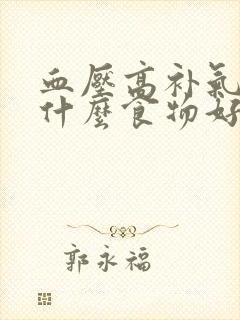 血壓高补氣
什麼食物好
郭永福